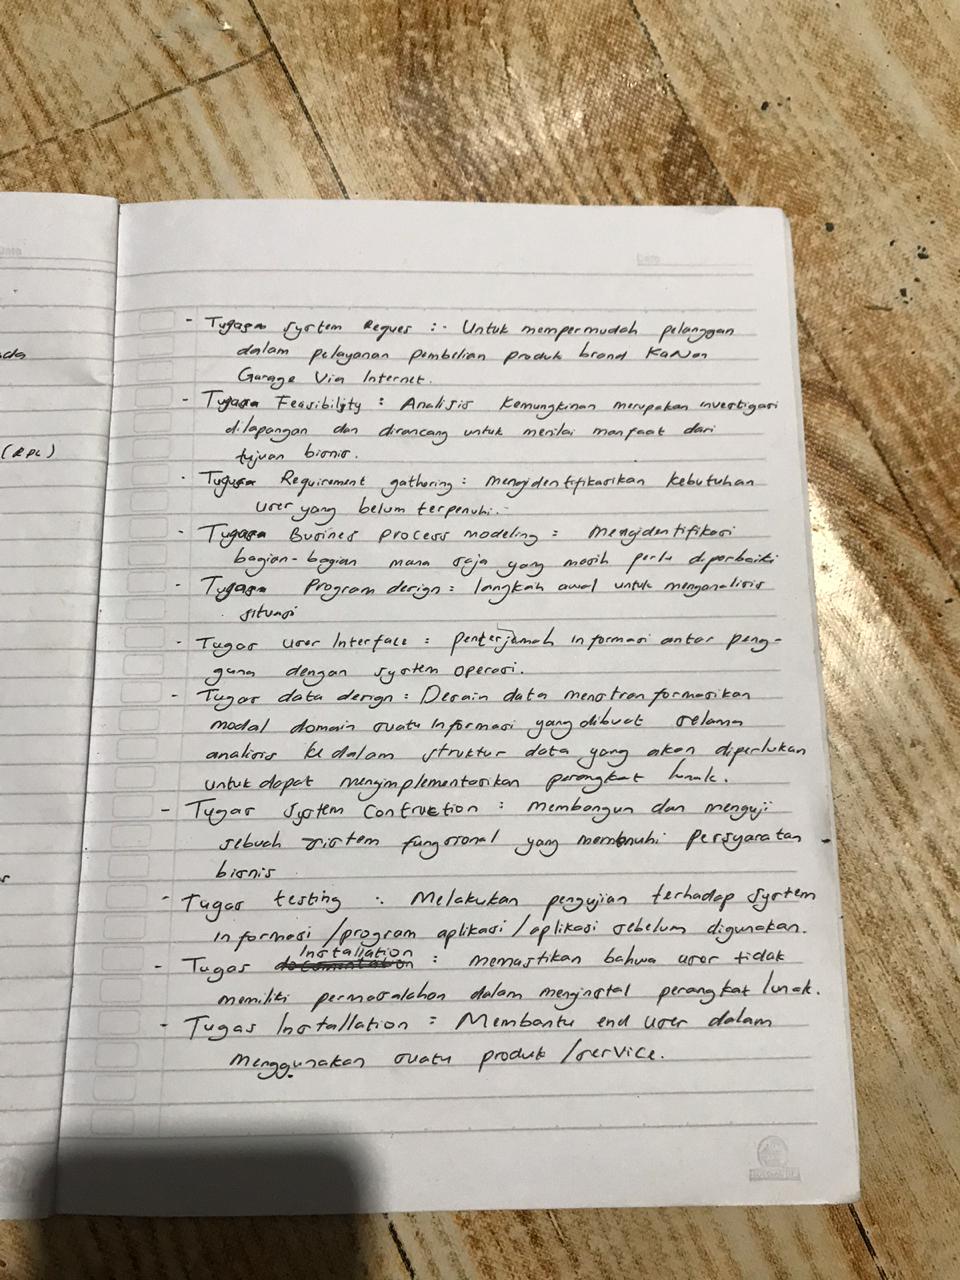 Date
Date
ada
(RPL)
- Tugas System Reques : - Untuk mempermudah pelanggan
dalam pelayanan pembelian produk brand
Garage Via Internet.
- Tugas Feasibility : Analisis Kemungkinan merupakan investigasi
dilapangan dan dirancang untuk menilai manfaat dari
tujuan bisnis.
- Tugas Requirement gathering : mengidentifikasikan kebutuhan
user yang belum terpenuhi. -
- Tugas Busines process modeling : mengidentifikasi
bagian-bagian mana saja yang masih perlu diperbaiki
- Tugas Program design : langkah awal untuk menganalisis
situasi
- Tugas User Interface : penterjemah informasi antar peng-
guna dengan system operasi.
- Tugas data design : Desain data menstranformasikan
modal domain suatu informasi yang dibuat selama
analisis ke dalam struktur data yang akan diperlukan
untuk dapat mengimplementasikan perangkat lunak.
- Tugas System Contruction : membangun dan menguji
sebuah sistem fungsional yang memenuhi persyaratan
bisnis
- Tugas testing : Melakukan pengujian terhadap system
informasi/program aplikasi/aplikasi sebelum digunakan.
- Tugas Installation : memastikan bahwa user tidak
memiliki permasalahan dalam menginstal perangkat lunak.
- Tugas Installation : Membantu end user dalam
menggunakan suatu produk/service.